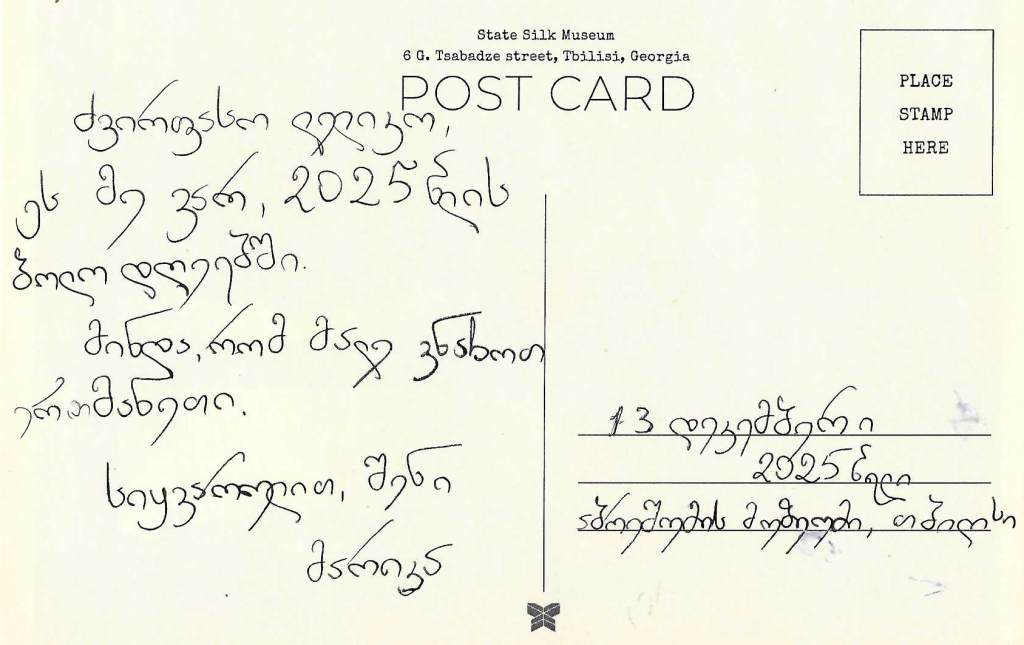 State Silk Museum
6 G. Tsabadze street, Tbilisi, Georgia
POST CARD
PLACE
STAMP
HERE
ძვირფასო ლელიკო,
ეს მე ვარ, 2025 წლის
ბოლო დღეებში.
მინდა, რომ მალე ვნახოთ
ერთმანეთი.
სიყვარულით, შენი
მარიკა
13 დეკემბერი
2025 წელი
აბრეშუმის მუზეუმი, თბილისი